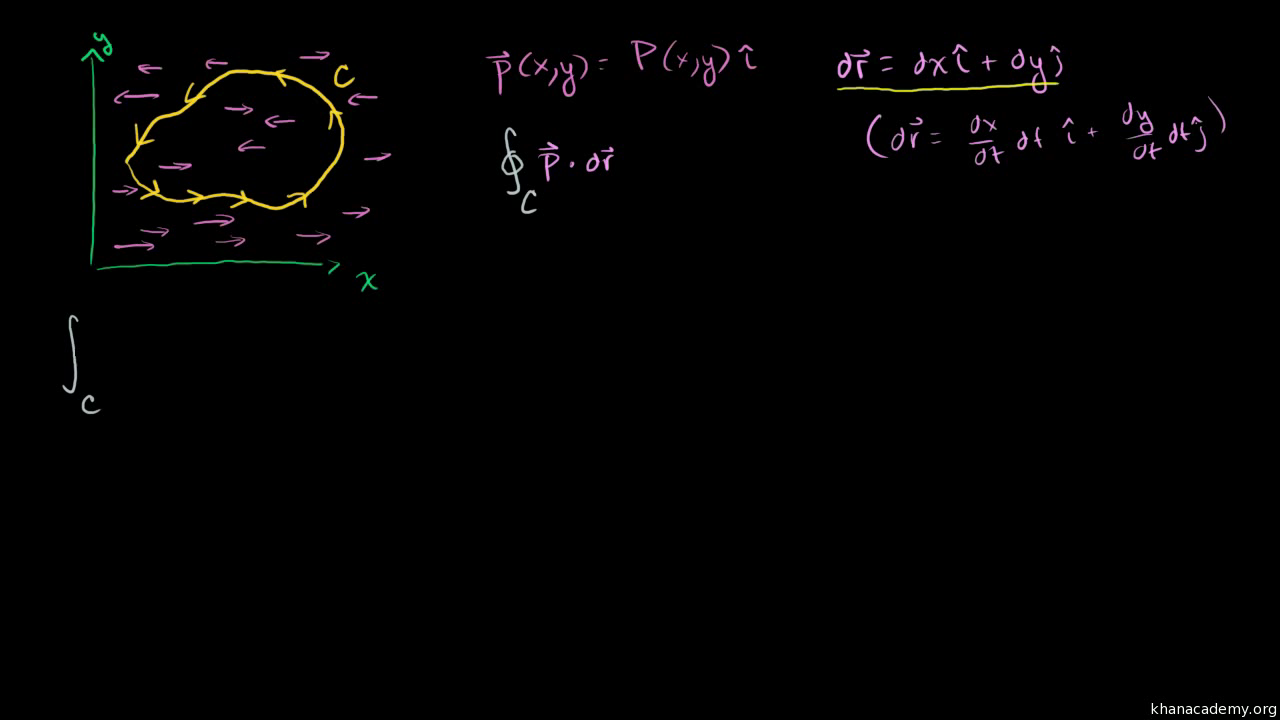 y
C
x
p⃗(x,y) = P(x,y) î
∮_C p⃗ · dr⃗
dr⃗ = dx î + dy ĵ
(dr⃗ = dx/dt dt î + dy/dt dt ĵ)
∫_C
khanacademy.org